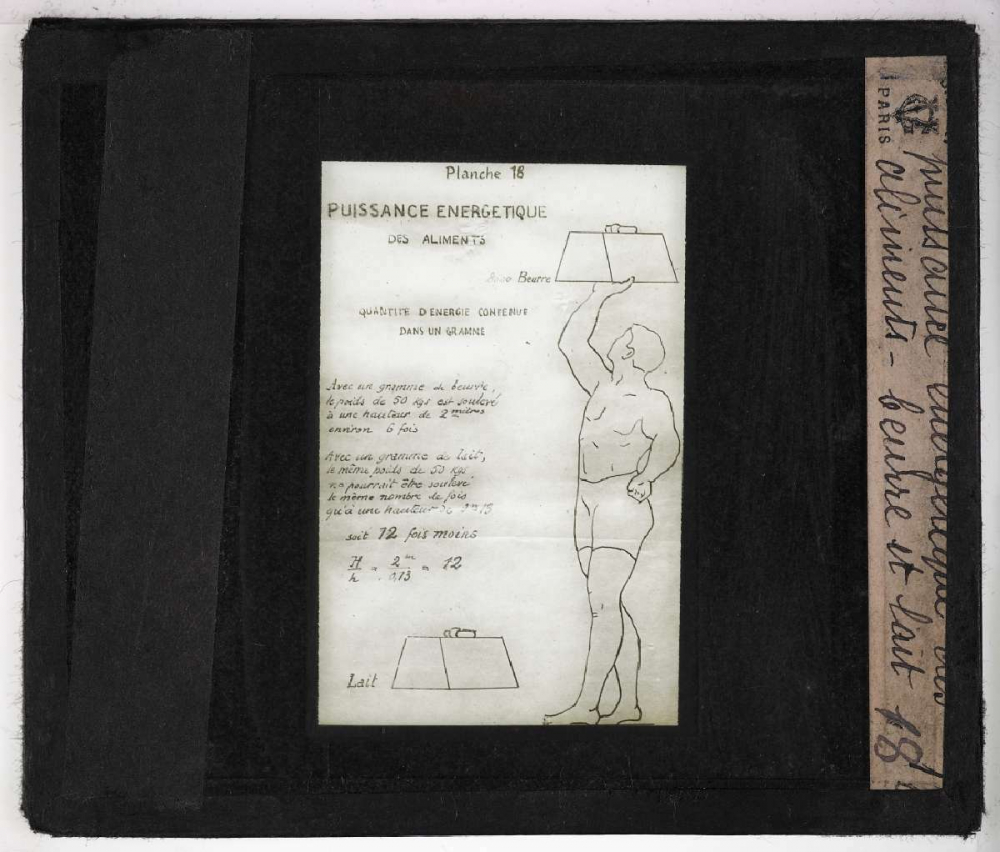 Planche 18
PUISSANCE ENERGETIQUE
DES ALIMENTS
Beurre
QUANTITE D'ENERGIE CONTENUE
DANS UN GRAMME
Avec un gramme de beurre,
le poids de 50 kgs est soulevé
à une hauteur de 2 mètres
environ 6 fois
Avec un gramme de lait,
le même poids de 50 kgs
ne pourrait être soulevé
le même nombre de fois
qu'à une hauteur de
soit 12 fois moins
H/h = 2m/0,13 = 12
Lait
PARIS
puissance energetique des
aliments - beurre et lait 18